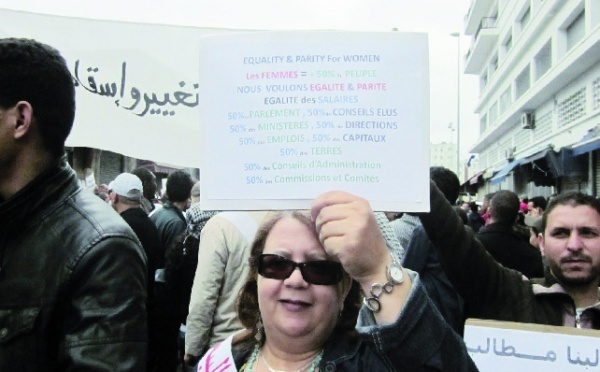 تغيير وإسقا
EQUALITY & PARITY For WOMEN
Les FEMMES = + 50% du PEUPLE
NOUS VOULONS EGALITE & PARITE
EGALITE des SALAIRES
50% du PARLEMENT , 50% des CONSEILS ELUS
50% des MINISTERES , 50% des DIRECTIONS
50% des EMPLOIS , 50% des CAPITAUX
50% des TERRES
50% des Conseils d'Administration
50% des Commissions et Comités
لبنا مطالب